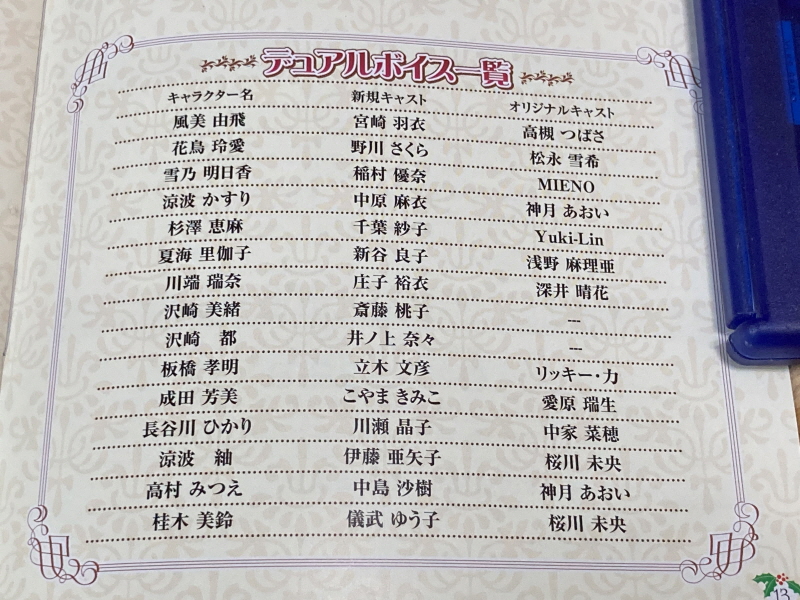 デュアルボイス一覧
キャラクター名 新規キャスト オリジナルキャスト
風美 由飛 宮崎 羽衣 高槻 つばさ
花鳥 玲愛 野川 さくら 松永 雪希
雪乃 明日香 稲村 優奈 MIENO
涼波 かすり 中原 麻衣 神月 あおい
杉澤 恵麻 千葉 紗子 Yuki-Lin
夏海 里伽子 新谷 良子 浅野 麻理亜
川端 瑞奈 庄子 裕衣 深井 晴花
沢崎 美緒 斎藤 桃子 ---
沢崎 都 井ノ上 奈々 ---
板橋 孝明 立木 文彦 リッキー・力
成田 芳美 こやま きみこ 愛原 瑞生
長谷川 ひかり 川瀬 晶子 中家 菜穂
涼波 紬 伊藤 亜矢子 桜川 未央
高村 みつえ 中島 沙樹 神月 あおい
桂木 美鈴 儀武 ゆう子 桜川 未央
13